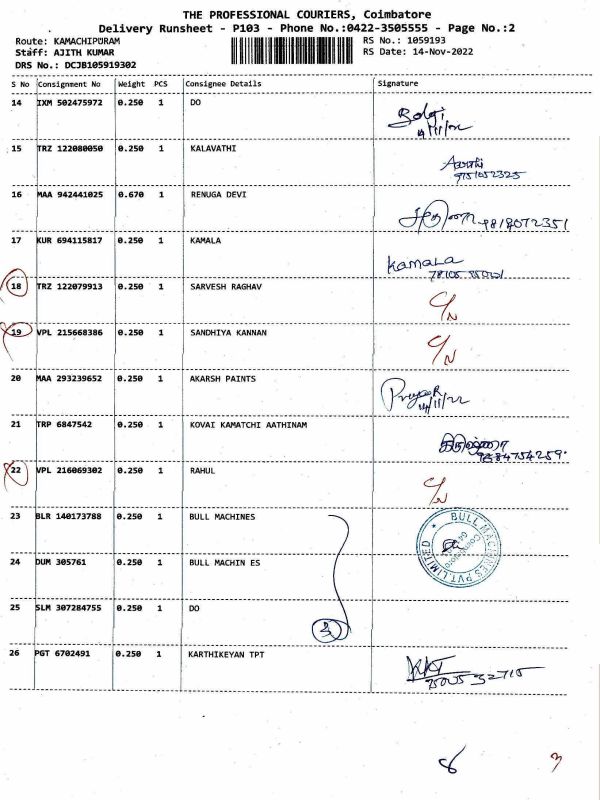 THE PROFESSIONAL COURIERS, Coimbatore
Delivery Runsheet - P103 - Phone No.:0422-3505555 - Page No.:2
Route: KAMACHIPURAM RS No.: 1059193
Staff: AJITH KUMAR RS Date: 14-Nov-2022
DRS No.: DCJB105919302
S No Consignment No Weight PCS Consignee Details Signature
14 IXM 502475972 0.250 1 DO
14/11/22
15 TRZ 122080050 0.250 1 KALAVATHI
9151052325
16 MAA 942441025 0.670 1 RENUGA DEVI
9818072351
17 KUR 694115817 0.250 1 KAMALA
Kamala
18 TRZ 122079913 0.250 1 SARVESH RAGHAV
C/N
19 VPL 215668386 0.250 1 SANDHIYA KANNAN
C/N
20 MAA 293239652 0.250 1 AKARSH PAINTS
14/11/22
21 TRP 6847542 0.250 1 KOVAI KAMATCHI AATHINAM
9684754259
22 VPL 216069302 0.250 1 RAHUL
C/N
23 BLR 140173788 0.250 1 BULL MACHINES
BULL MACHINES PVT.LIMITED
24 DUM 305761 0.250 1 BULL MACHIN ES
25 SLM 307284755 0.250 1 DO
3
26 PGT 6702491 0.250 1 KARTHIKEYAN TPT
KKT
8 3